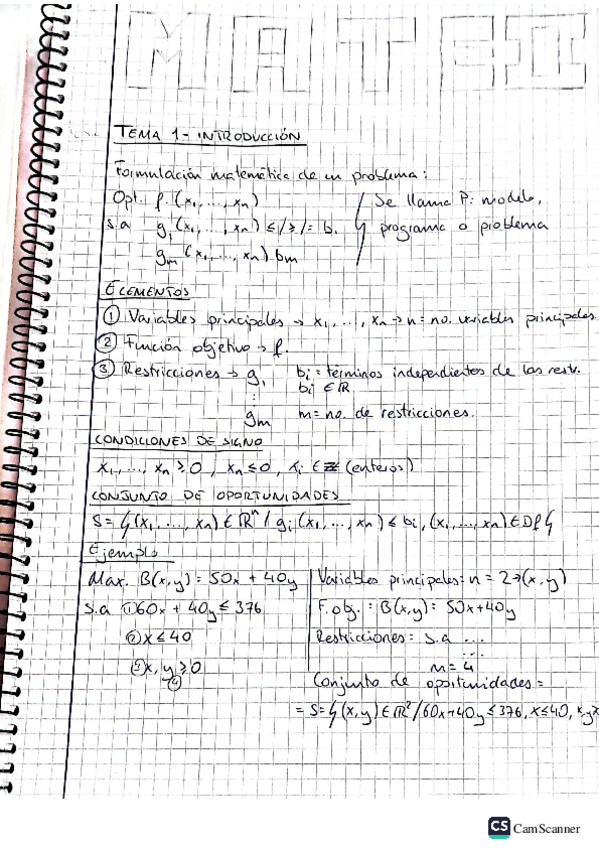 MATE II
TEMA 1 - INTRODUCCIÓN
Formulación matemática de un problema:
Opt. f (x₁, ..., xₙ) } Se llama P: modelo,
s.a g₁ (x₁, ..., xₙ) ≤/≥/= b. } programa o problema
gₘ (x₁, ..., xₙ) bₘ
ELEMENTOS
① Variables principales → x₁, ..., xₙ → n = no. variables principales.
② Función objetivo → f.
③ Restricciones → g₁ bᵢ = términos independientes de las restr.
⋮ bᵢ ∈ ℝ
gₘ m = no. de restricciones.
CONDICIONES DE SIGNO
x₁, ..., xₙ ≥ 0, xₙ ≤ 0, xᵢ ∈ ℤ (enteros)
CONJUNTO DE OPORTUNIDADES
S = {(x₁, ..., xₙ) ∈ ℝⁿ / gᵢ (x₁, ..., xₙ) ≤ bᵢ, (x₁, ..., xₙ) ∈ Df}
Ejemplo
Max. B(x,y) = 50x + 40y | Variables principales: n = 2 → (x,y)
s.a ① 60x + 40y ≤ 376 | F. obj. : B(x,y) = 50x + 40y
② x ≤ 40 | Restricciones = s.a ...
...
③ x, y ≥ 0 m = 4
④ Conjunto de oportunidades =
= S = {(x,y) ∈ ℝ² / 60x + 40y ≤ 376, x ≤ 40, x,y
CS CamScanner